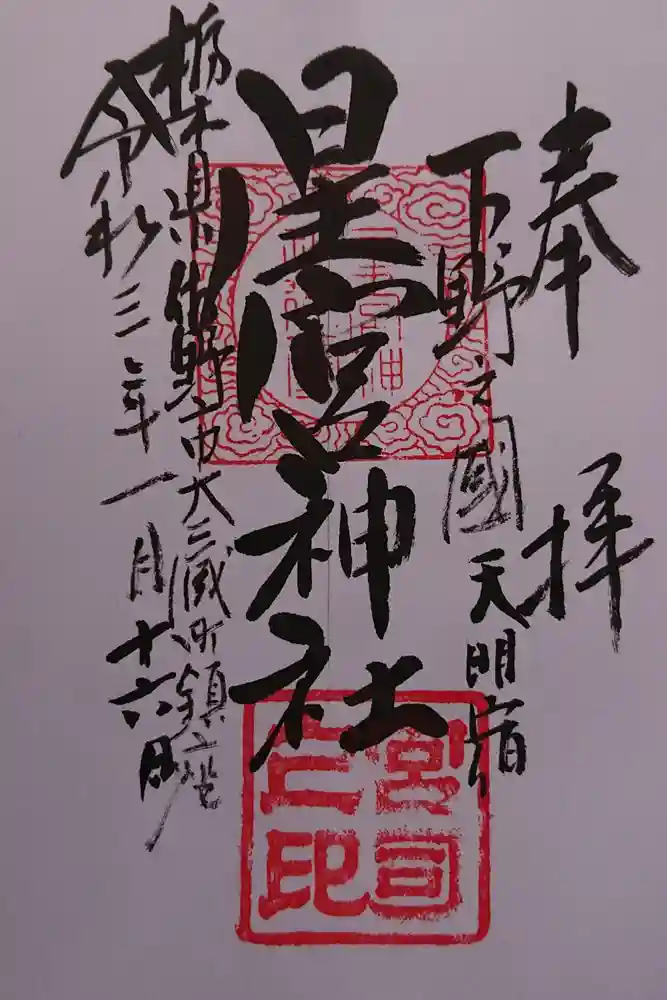 奉拝
下野之國 天明宿
星宮神社
栃木県佐野市大蔵町鎮座
令和三年一月十六日
宮司
之印